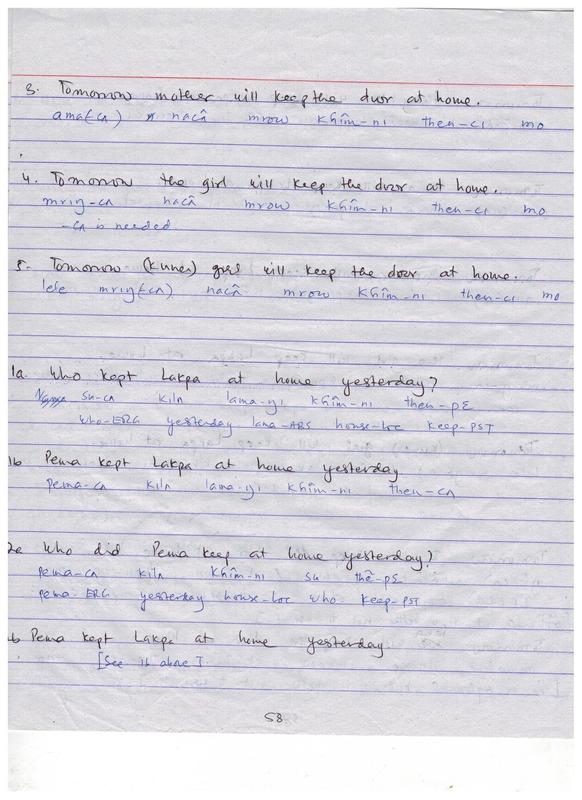 3. Tomorrow mother will keep the door at home.
ama(-cʌ) nacâ mrow khîm-ni then-ci mo
4. Tomorrow the girl will keep the door at home.
mriŋ-cʌ nacâ mrow khîm-ni then-ci mo
-cʌ is needed
5. Tomorrow (Kunes) goes will keep the door at home.
lele mriŋ(-cʌ) nacâ mrow khîm-ni then-ci mo
1a. Who kept Lakpa at home yesterday?
su-cʌ kilʌ lama-yi khîm-ni then-pɛ
who-ERG yesterday lama-ABS house-loc keep-PST
1b Pema kept Lakpa at home yesterday
pema-cʌ kilʌ lama-yi khîm-ni then-cʌ
2a Who did Pema keep at home yesterday?
pema-cʌ kilʌ khîm-ni su thê-pɛ
pema-ERG yesterday house-loc who keep-PST
b Pema kept Lakpa at home yesterday.
[See 1b above]
58